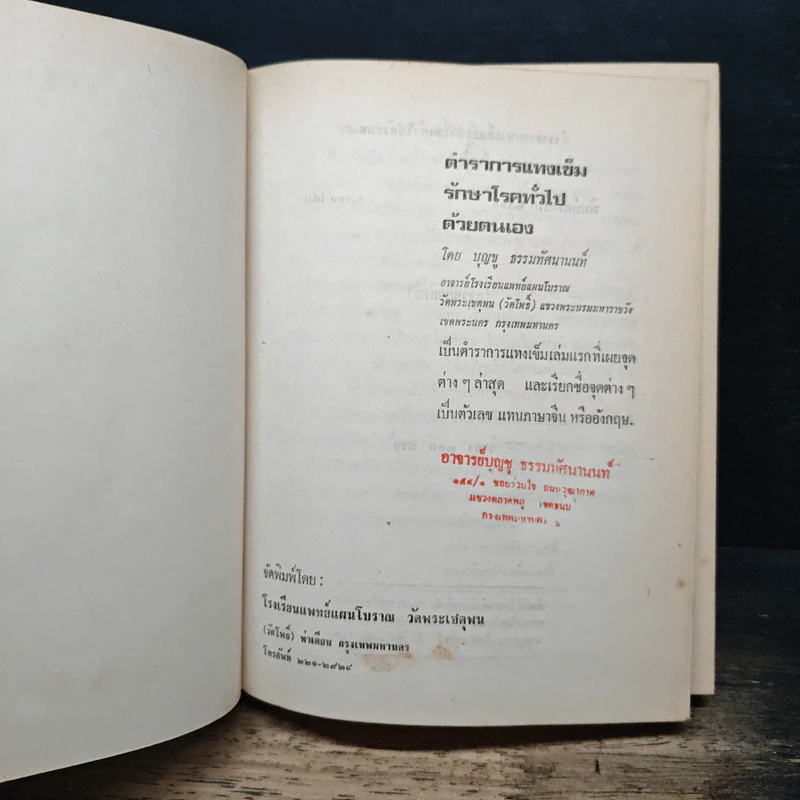 ตำราการแทงเข็ม
รักษาโรคทั่วไป
ด้วยตนเอง
โดย บุญชู ธรรมทัศนานนท์
อาจารย์โรงเรียนแพทย์แผนโบราณ
วัดพระเชตุพน (วัดโพธิ์) แขวงพระบรมมหาราชวัง
เขตพระนคร กรุงเทพมหานคร
เป็นตำราการแทงเข็มเล่มแรกที่เผยจุด
ต่าง ๆ ล่าสุด และเรียกชื่อจุดต่าง ๆ
เป็นตัวเลข แทนภาษาจีน หรืออังกฤษ.
อาจารย์บุญชู ธรรมทัศนานนท์
๑๕๔/๑ ซอยร่วมใจ ถนนวุฒากาศ
แขวงตลาดพลู เขตธนบุ
กรุงเทพมหานคร ๖
จัดพิมพ์โดย :
โรงเรียนแพทย์แผนโบราณ วัดพระเชตุพน
(วัดโพธิ์) ท่าเตียน กรุงเทพมหานคร
โทรศัพท์ ๒๒๑-๒๙๗๔